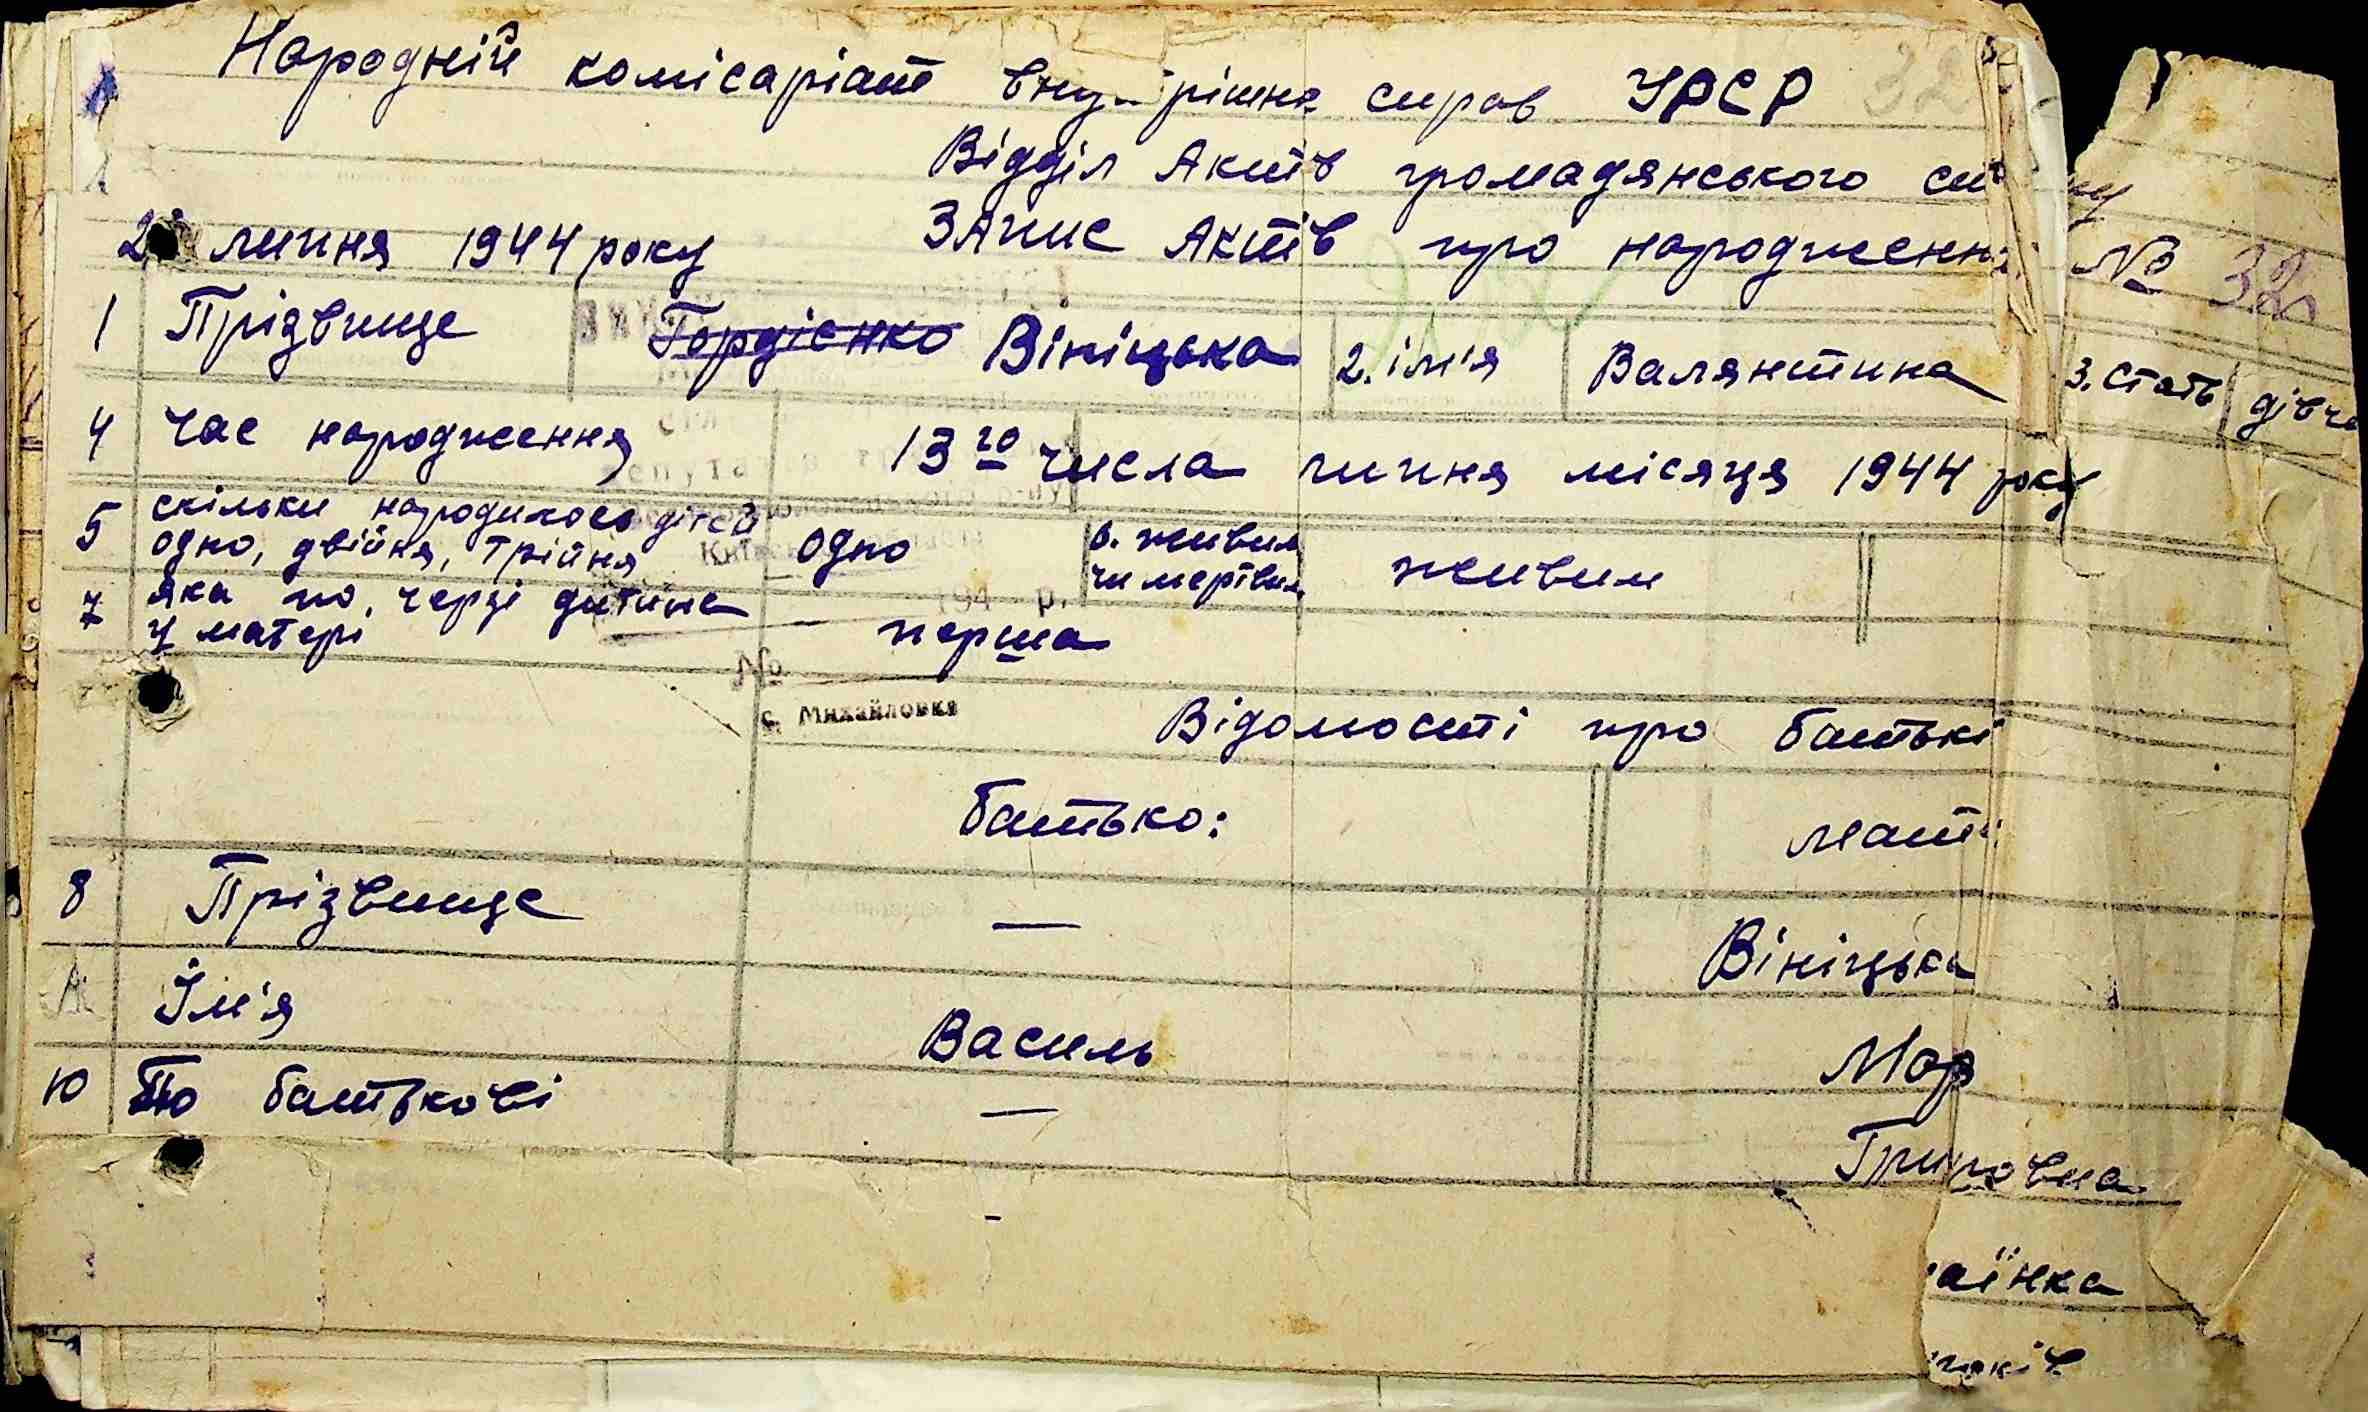 Народній комісаріат внутрішніх справ УРСР
Відділ Актів громадянського
2 липня 1944 року Запис Актів про народження № 32
1 Прізвище Гордієнко Вініцька 2. ім'я Валянтина 3. стать дівч
4 Час народження 13го числа липня місяця 1944 року
5 скільки народилось дітей одно 6. живим живим
одно, двійня, трійня чи мертвим
7 яка по черзі дитина перша
у матері
№
с. Михайловка
Відомості про батькі
Батько: мати
8 Прізвище — Вініцька
Ім'я Василь Мар
10 По батькові —
аїнка